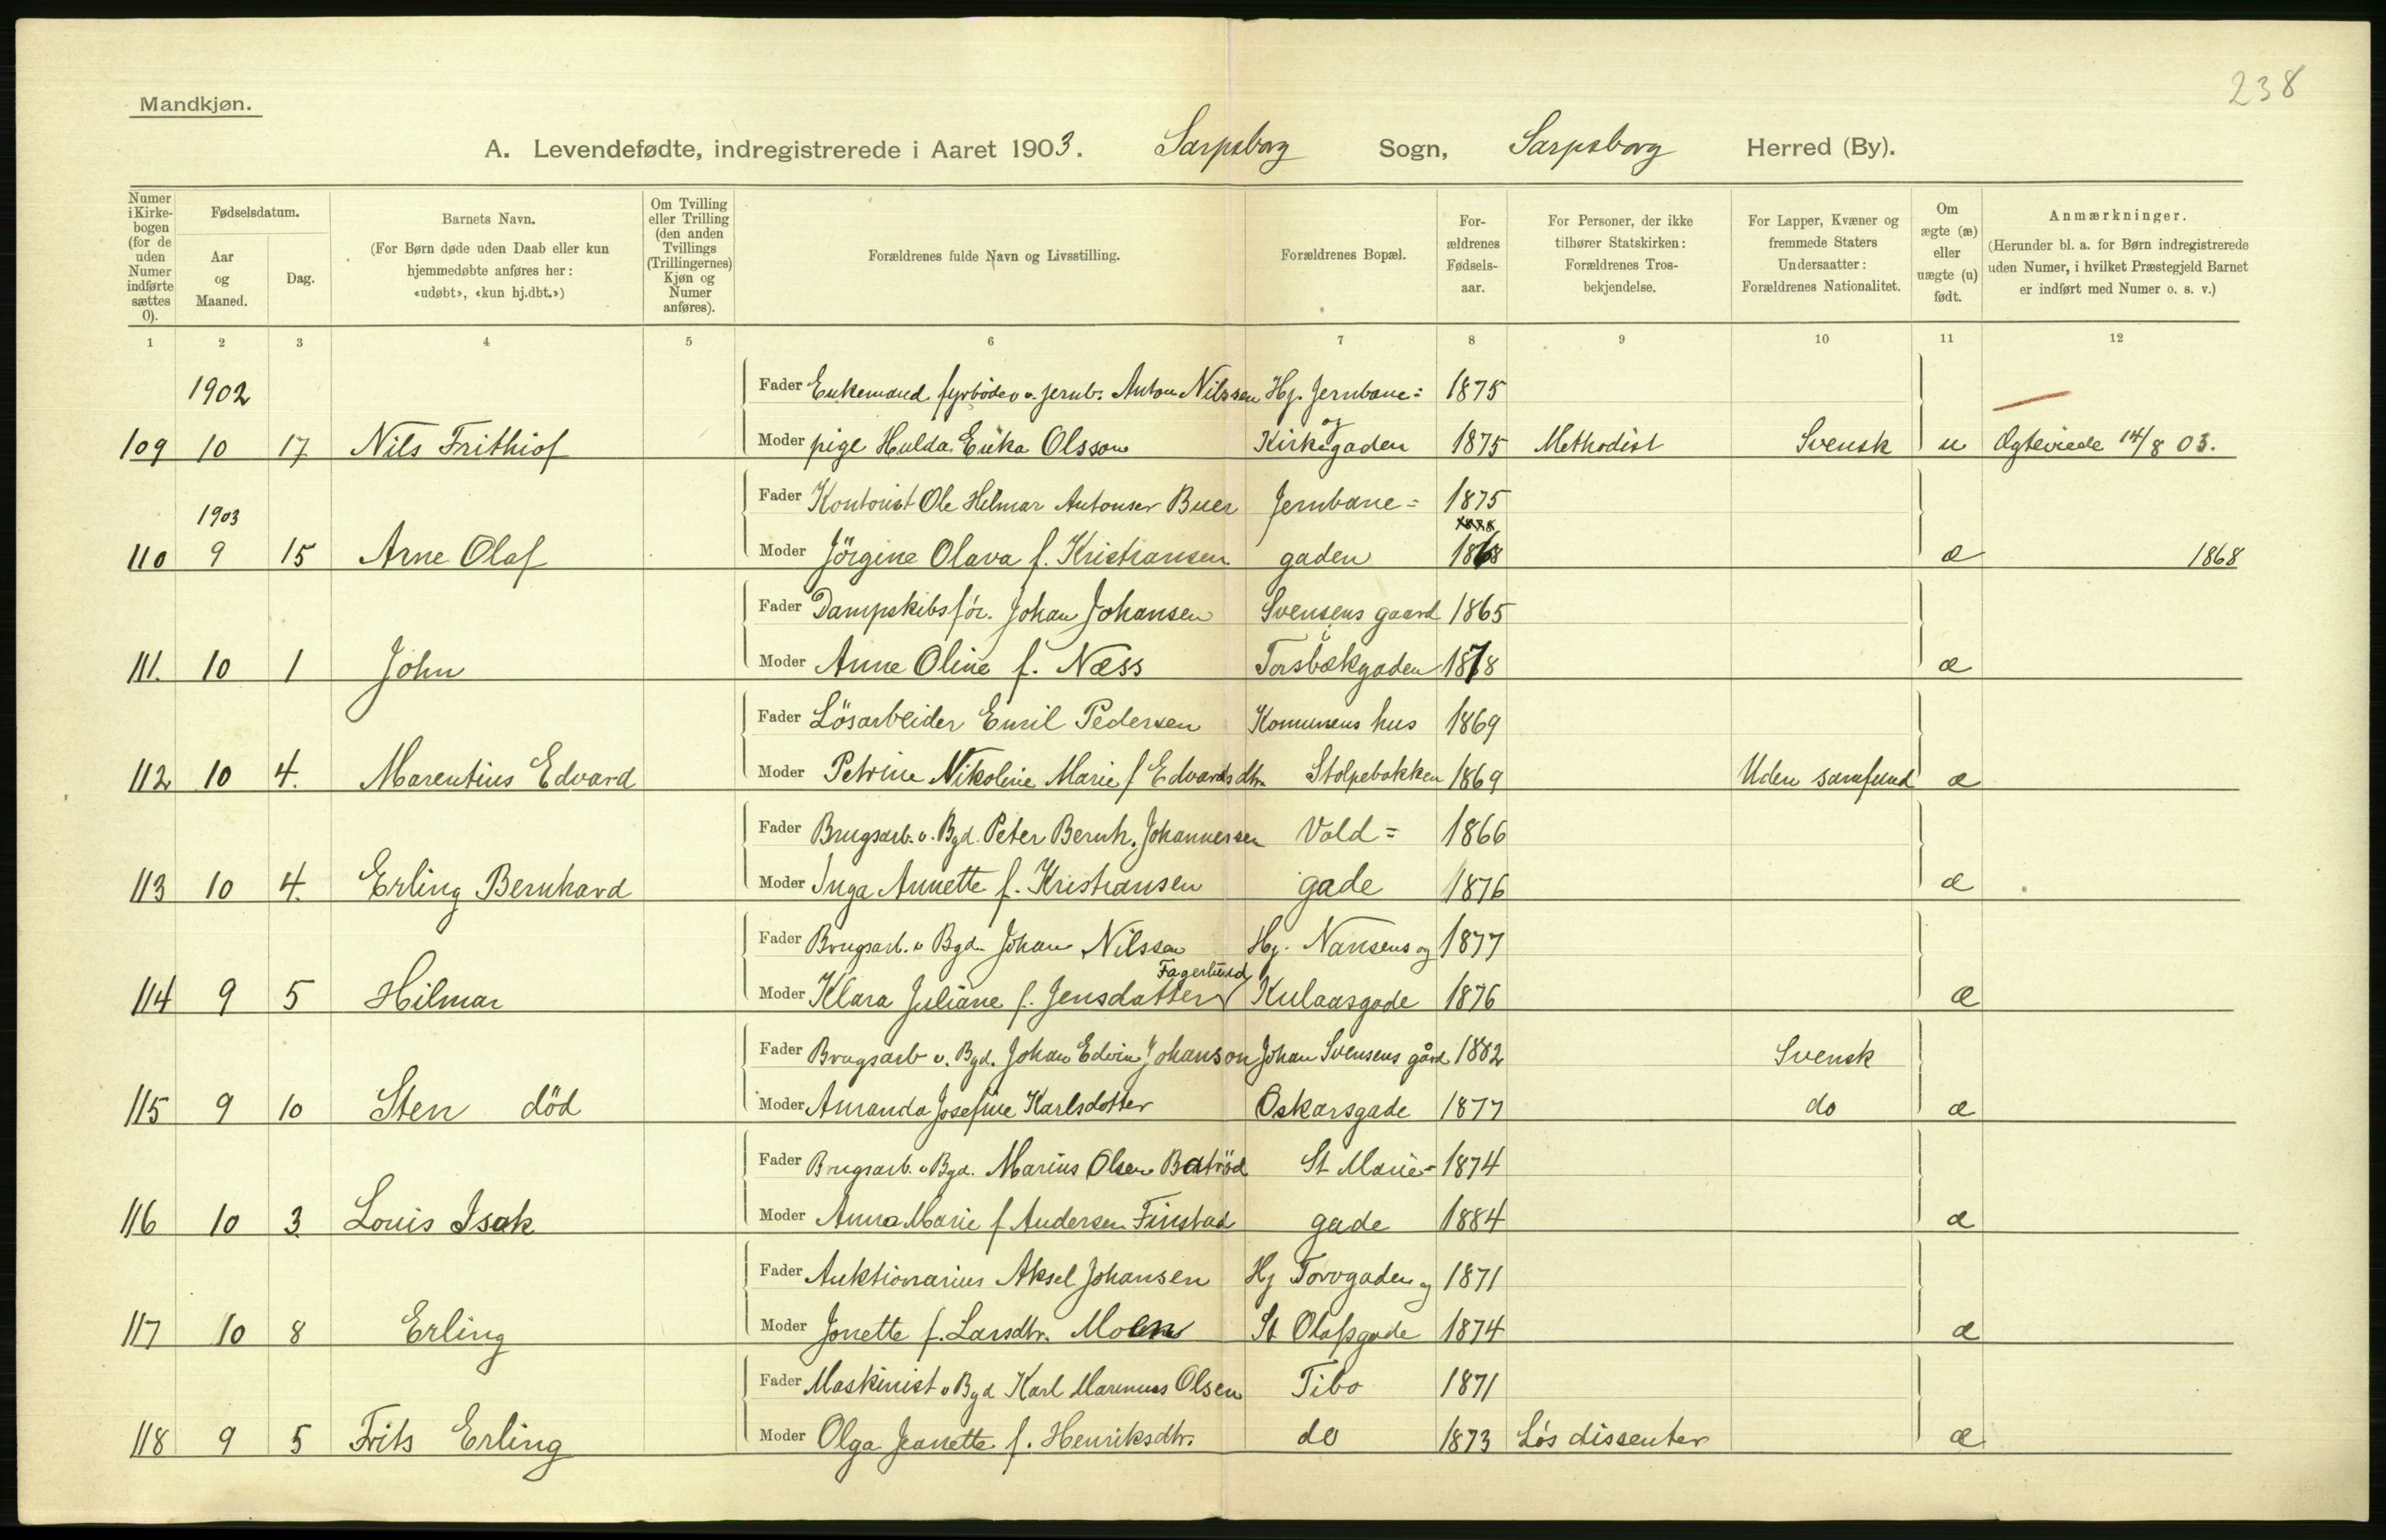 238
Mandkjøn.
A. Levendefødte, indregistrerede i Aaret 1903. Sarpsborg Sogn, Sarpsborg Herred (By).
Numer i Kirkebogen (for de uden Numer indførte sættes 0).
Fødselsdatum.
Aar og Maaned.
Dag.
Barnets Navn.
(For Børn døde uden Daab eller kun hjemmedøbte anføres her: «udøbt», «kun hj.dbt.»)
Om Tvilling eller Trilling (den anden Tvillings (Trillingernes) Kjøn og Numer anføres).
Forældrenes fulde Navn og Livsstilling.
Forældrenes Bopæl.
Forældrenes Fødselsaar.
For Personer, der ikke tilhører Statskirken: Forældrenes Trosbekjendelse.
For Lapper, Kvæner og fremmede Staters Undersaatter: Forældrenes Nationalitet.
Om ægte (æ) eller uægte (u) født.
Anmærkninger.
(Herunder bl. a. for Børn indregistrerede uden Numer, i hvilket Præstegjeld Barnet er indført med Numer o. s. v.)
1 2 3 4 5 6 7 8 9 10 11 12
1902 Fader Enkemand fyrböder v. jernb. Anton Nilssen Hj. Jernbane= 1875
og
109 10 17 Nils Frithiof Moder pige Hulda Erika Olsson Kirkegaden 1875 Methodist Svensk u Ægteviede 14/8 03.
1903 Fader Kontorist Ole Hilmar Antonsen Buer Jernbane= 1875
110 9 15 Arne Olaf Moder Jörgine Olava f. Kristiansen gaden 1868 æ 1868
Fader Dampskibsför. Johan Johansen Svensens gaard 1865
111. 10 1 John Moder Anne Oline f. Næss Torsbækgaden 1878 æ
Fader Lösarbeider Emil Pedersen Komunens hus 1869
112 10 4. Marentius Edvard Moder Petrine Nikoline Marie f Edvardsdtr. Stolpebakken 1869 Uden samfund æ
Fader Brugsarb. v. Bgd. Peter Bernh. Johannessen Vold= 1866
113 10 4. Erling Bernhard Moder Inga Annette f. Kristiansen gade 1876 æ
Fader Brugsarb. v Bgd. Johan Nilssen Hj. Nansens og 1877
Fagerlund
114 9 5 Hilmar Moder Klara Juliane f. Jensdatter Kulaasgade 1876 æ
Fader Brugsarb v. Bgd. Johan Edvin Johanson Johan Svensens gård 1882 Svensk
115 9 10 Sten död Moder Amanda Josefine Karlsdotter Oskarsgade 1877 do æ
Fader Brugsarb. v Bgd. Marius Olsen Batröd St Marie= 1874
116 10 3. Louis Isak Moder Anna Marie f Andersen Finstad gade 1884 æ
Fader Auktionarius Aksel Johansen Hj Torvgaden og 1871
117 10 8 Erling Moder Jonette f. Larsdtr. Moen St Olafsgade 1874 æ
Fader Maskinist v Bgd Karl Marinius Olsen Tibo 1871
118 9 5 Frits Erling Moder Olga Jeanette f. Henriksdtr. do 1873 Lös dissenter æ